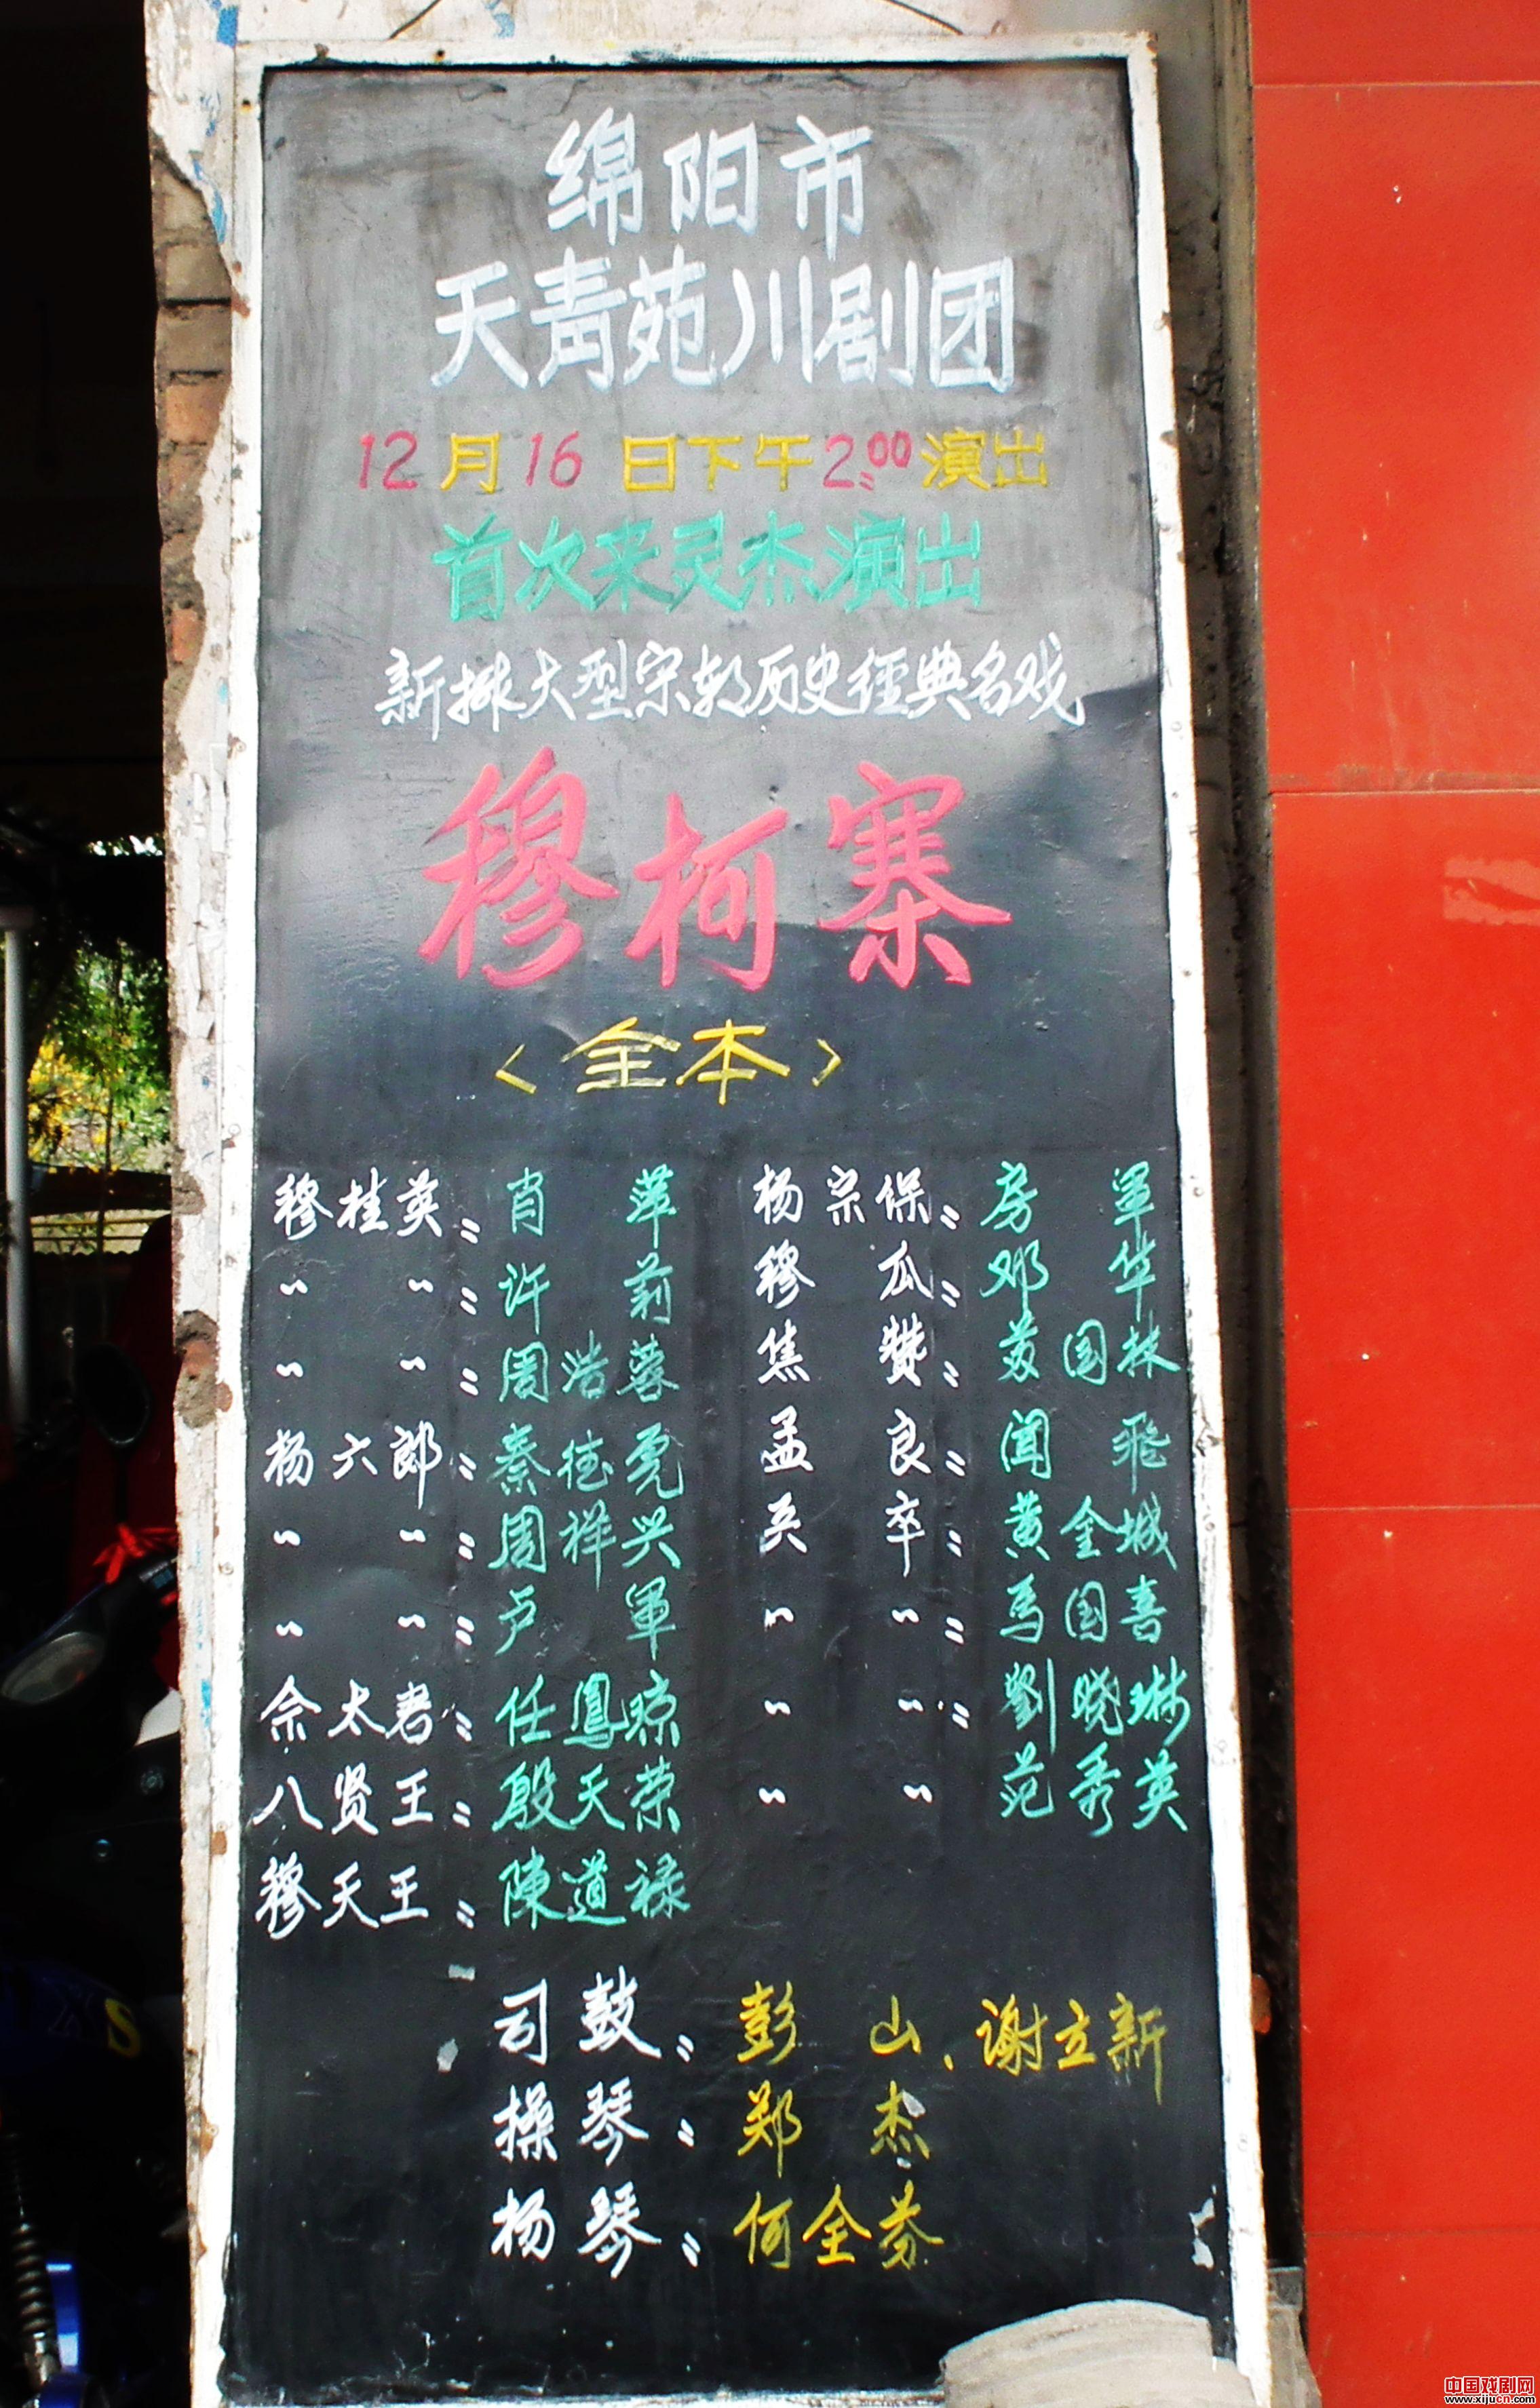 绵阳市
天青苑川剧团
12月16日下午2:00演出
首次来灵杰演出
新排大型宋朝历史經典名戏
穆柯寨
<全本>
穆桂英: 肖萍 杨宗保: 房军
〃 〃: 许莉 穆瓜: 邓华
〃 〃: 周浩蓉 焦赞: 国林
杨六郎: 秦德亮 孟良: 闻飛
〃 〃: 周祥兴 兵卒: 黄金城
〃 〃: 卢軍 〃 〃: 马国喜
佘太君: 任鳳琼 〃 〃: 劉晓琳
八贤王: 殷天荣 〃 〃 范秀英
穆天王: 陳道禄
司鼓: 彭山、谢立新
操琴: 郑杰
杨琴: 何全芬
中国戏剧网
www.xijucn.com